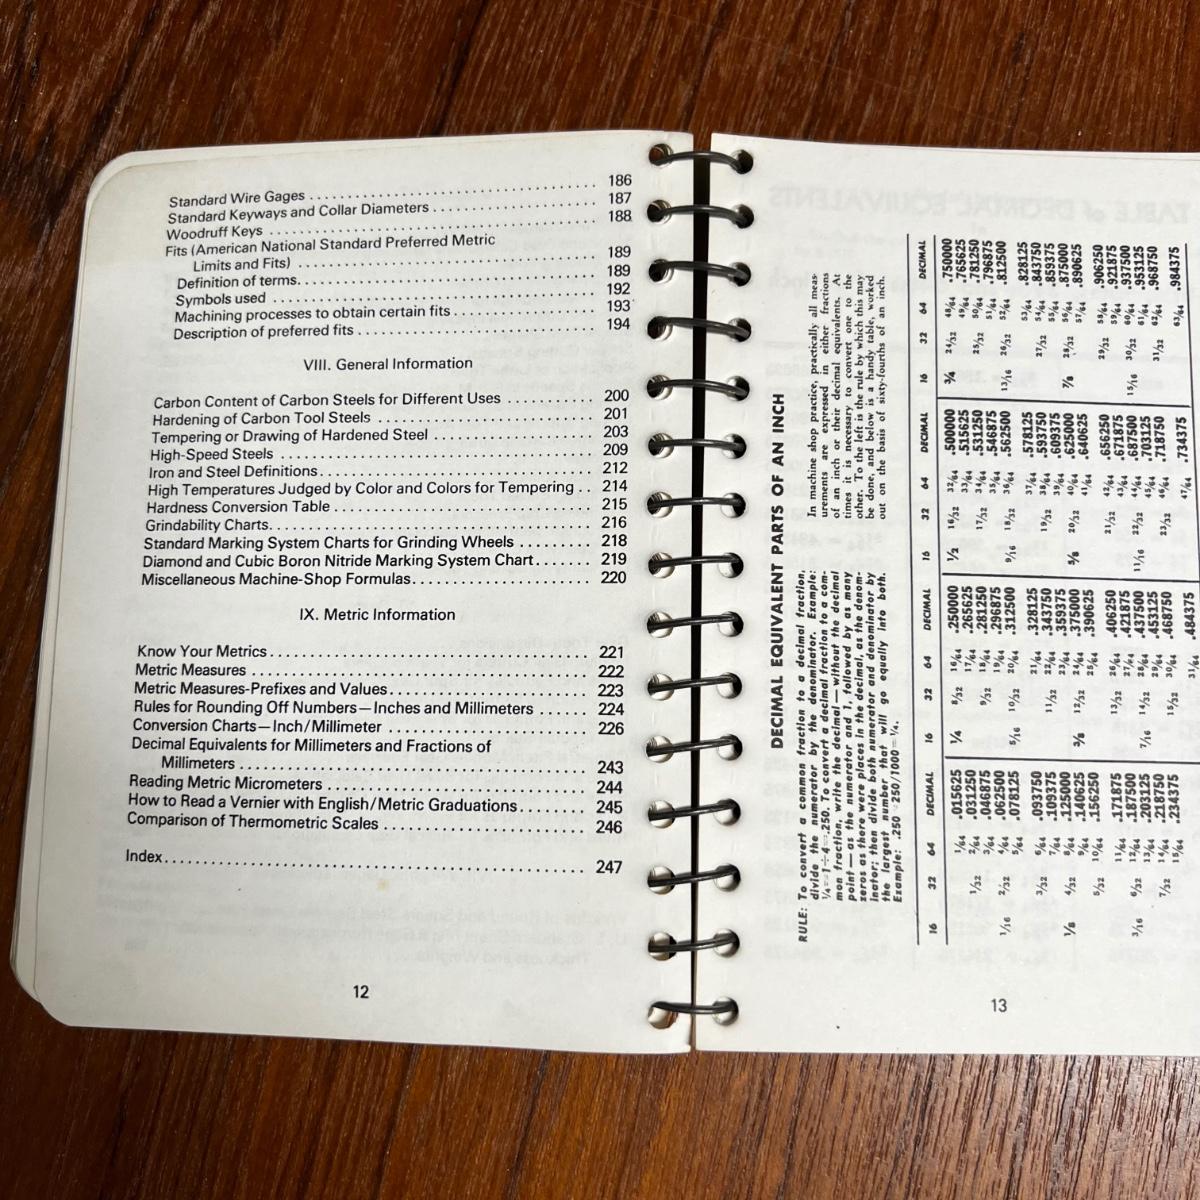 Standard Wire Gages ........ 186
Standard Keyways and Collar Diameters ........ 187
Woodruff Keys ........ 188
Fits (American National Standard Preferred Metric
Limits and Fits) ........ 189
Definition of terms ........ 189
Symbols used ........ 192
Machining processes to obtain certain fits ........ 193
Description of preferred fits ........ 194
VIII. General Information
Carbon Content of Carbon Steels for Different Uses ........ 200
Hardening of Carbon Tool Steels ........ 201
Tempering or Drawing of Hardened Steel ........ 203
High-Speed Steels ........ 209
Iron and Steel Definitions ........ 212
High Temperatures Judged by Color and Colors for Tempering .. 214
Hardness Conversion Table ........ 215
Grindability Charts ........ 216
Standard Marking System Charts for Grinding Wheels ........ 218
Diamond and Cubic Boron Nitride Marking System Chart ........ 219
Miscellaneous Machine-Shop Formulas ........ 220
IX. Metric Information
Know Your Metrics ........ 221
Metric Measures ........ 222
Metric Measures-Prefixes and Values ........ 223
Rules for Rounding Off Numbers—Inches and Millimeters ........ 224
Conversion Charts—Inch/Millimeter ........ 226
Decimal Equivalents for Millimeters and Fractions of
Millimeters ........ 243
Reading Metric Micrometers ........ 244
How to Read a Vernier with English/Metric Graduations ........ 245
Comparison of Thermometric Scales ........ 246
Index ........ 247
12
DECIMAL EQUIVALENT PARTS OF AN INCH
RULE: To convert a common fraction to a decimal fraction,
divide the numerator by the denominator. Example:
¼=1÷4=.250. To convert a decimal fraction to a com-
mon fraction, write the decimal—without the decimal
point—as the numerator and 1, followed by as many
zeros as there were places in the decimal, as the denom-
inator; then divide both numerator and denominator by
the largest number that will go equally into both.
Example: .250=250/1000=¼.
In machine shop practice, practically all meas-
urements are expressed in either fractions
of an inch or their decimal equivalents. At
times it is necessary to convert one to the
other. To the left is the rule by which this may
be done, and below is a handy table, worked
out on the basis of sixty-fourths of an inch.
16 32 64 DECIMAL 16 32 64 DECIMAL 16 32 64 DECIMAL 16 32 64 DECIMAL
1/64 .015625 1/4 8/32 16/64 .250000 1/2 16/32 32/64 .500000 3/4 24/32 48/64 .750000
1/32 2/64 .031250 17/64 .265625 33/64 .515625 49/64 .765625
3/64 .046875 9/32 18/64 .281250 17/32 34/64 .531250 25/32 50/64 .781250
1/16 2/32 4/64 .062500 19/64 .296875 35/64 .546875 51/64 .796875
5/64 .078125 5/16 10/32 20/64 .312500 9/16 18/32 36/64 .562500 13/16 26/32 52/64 .812500
3/32 6/64 .093750 21/64 .328125 37/64 .578125 53/64 .828125
7/64 .109375 11/32 22/64 .343750 19/32 38/64 .593750 27/32 54/64 .843750
1/8 4/32 8/64 .125000 23/64 .359375 39/64 .609375 55/64 .859375
9/64 .140625 3/8 12/32 24/64 .375000 5/8 20/32 40/64 .625000 7/8 28/32 56/64 .875000
5/32 10/64 .156250 25/64 .390625 41/64 .640625 57/64 .890625
11/64 .171875 13/32 26/64 .406250 21/32 42/64 .656250 29/32 58/64 .906250
3/16 6/32 12/64 .187500 27/64 .421875 43/64 .671875 59/64 .921875
13/64 .203125 7/16 14/32 28/64 .437500 11/16 22/32 44/64 .687500 15/16 30/32 60/64 .937500
7/32 14/64 .218750 29/64 .453125 45/64 .703125 61/64 .953125
15/64 .234375 15/32 30/64 .468750 23/32 46/64 .718750 31/32 62/64 .968750
31/64 .484375 47/64 .734375 63/64 .984375
13